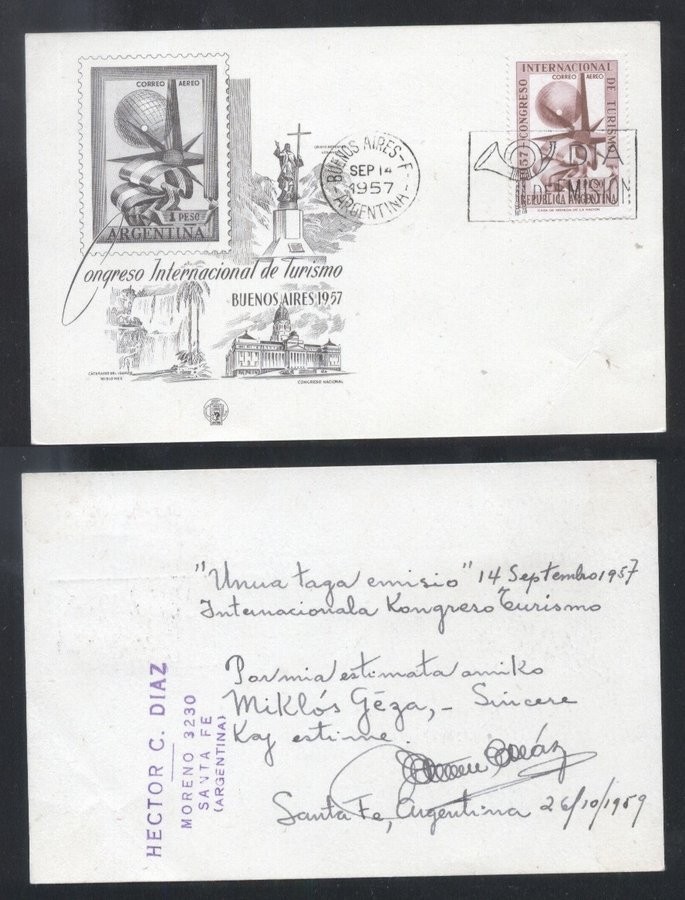 CORREO AEREO
1 PESO
ARGENTINA
Congreso Internacional de Turismo
BUENOS AIRES 1957
CATARATAS DEL IGUAZU
MISIONES
CONGRESO NACIONAL
BUENOS AIRES-F
SEP 14
1957
ARGENTINA
CONGRESO INTERNACIONAL DE TURISMO
CORREO AEREO
REPUBLICA ARGENTINA
CASA DE MONEDA DE LA NACION
DIA
DE EMISION
"Unua taga emisio" 14 Septembro 1957
Internacionala Kongreso Turismo
Por mia estimata amiko
Miklós Géza,- Sincere
Kaj estime.
Santa Fe, Argentina 26/10/1959
HECTOR C. DIAZ
MORENO 3230
SANTA FE
(ARGENTINA)